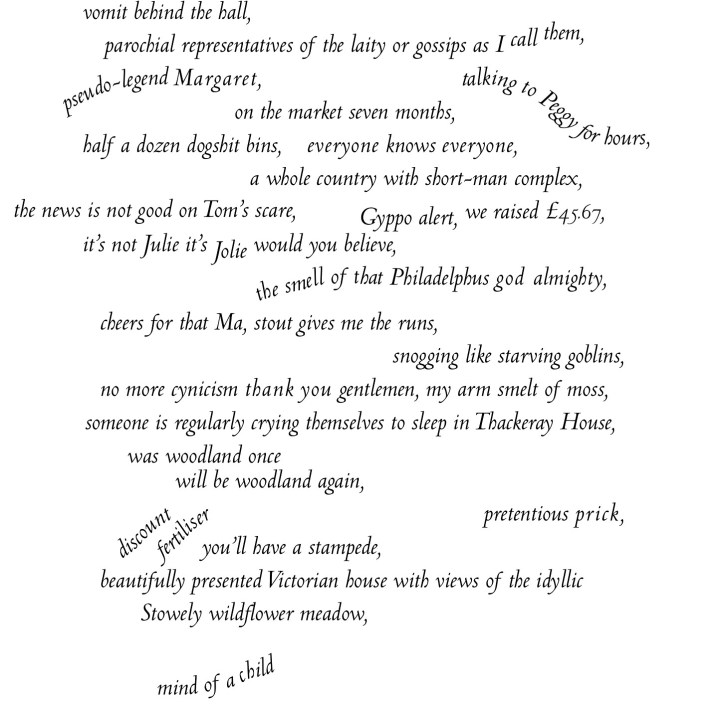 vomit behind the hall,
parochial representatives of the laity or gossips as I call them,
pseudo-legend Margaret,
talking to Peggy for hours,
on the market seven months,
half a dozen dogshit bins, everyone knows everyone,
a whole country with short-man complex,
the news is not good on Tom's scare, Gyppo alert, we raised £45.67,
it's not Julie it's Jolie would you believe,
the smell of that Philadelphus god almighty,
cheers for that Ma, stout gives me the runs,
snogging like starving goblins,
no more cynicism thank you gentlemen, my arm smelt of moss,
someone is regularly crying themselves to sleep in Thackeray House,
was woodland once
will be woodland again,
pretentious prick,
discount
fertiliser
you'll have a stampede,
beautifully presented Victorian house with views of the idyllic
Stowely wildflower meadow,
mind of a child